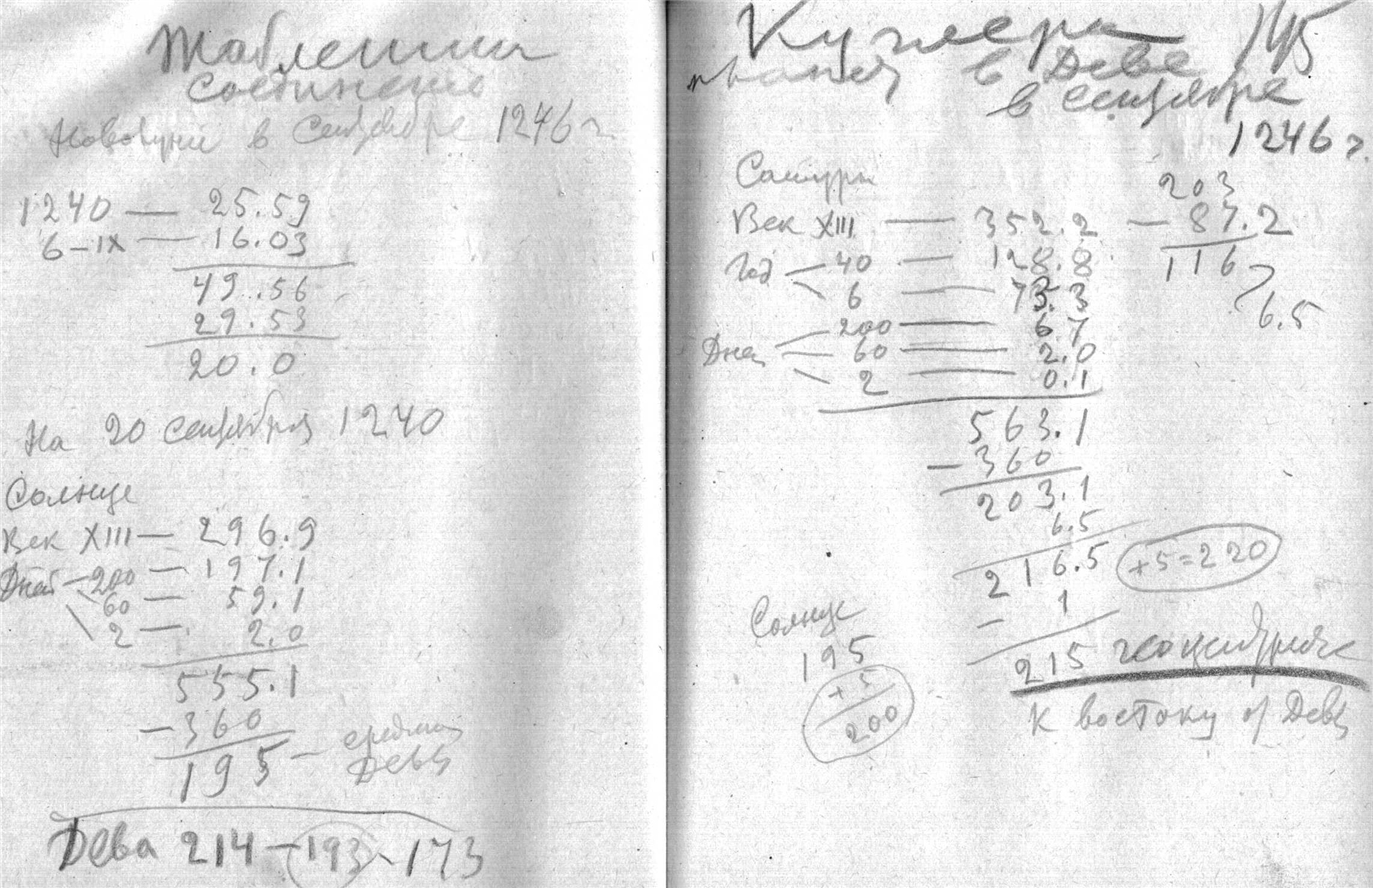 соединение
Новолуние в Сентябре 1246 г
1240 — 25.59
6 – IX — 16.03
49.56
29.53
20.0
На 20 сентября 1240
Солнце
Век XIII — 296.9
Дней 200 — 197.1
60 — 59.1
2 — 2.0
555.1
– 360
195 – середина
Девы
Дева 214 – 193 – 173
145
в Деве
в сентябре
1246 г.
Сатурн
Век XIII — 352.2
Год 40 — 128.8
6 — 73.3
Дней 200 — 6.7
60 — 2.0
2 — 0.1
563.1
– 360
203.1
6.5
216.5
+5=220
1
–
215 геоцентрич
К востоку от Девы
203
– 87.2
116
6.5
Солнце
195
+ 5
200